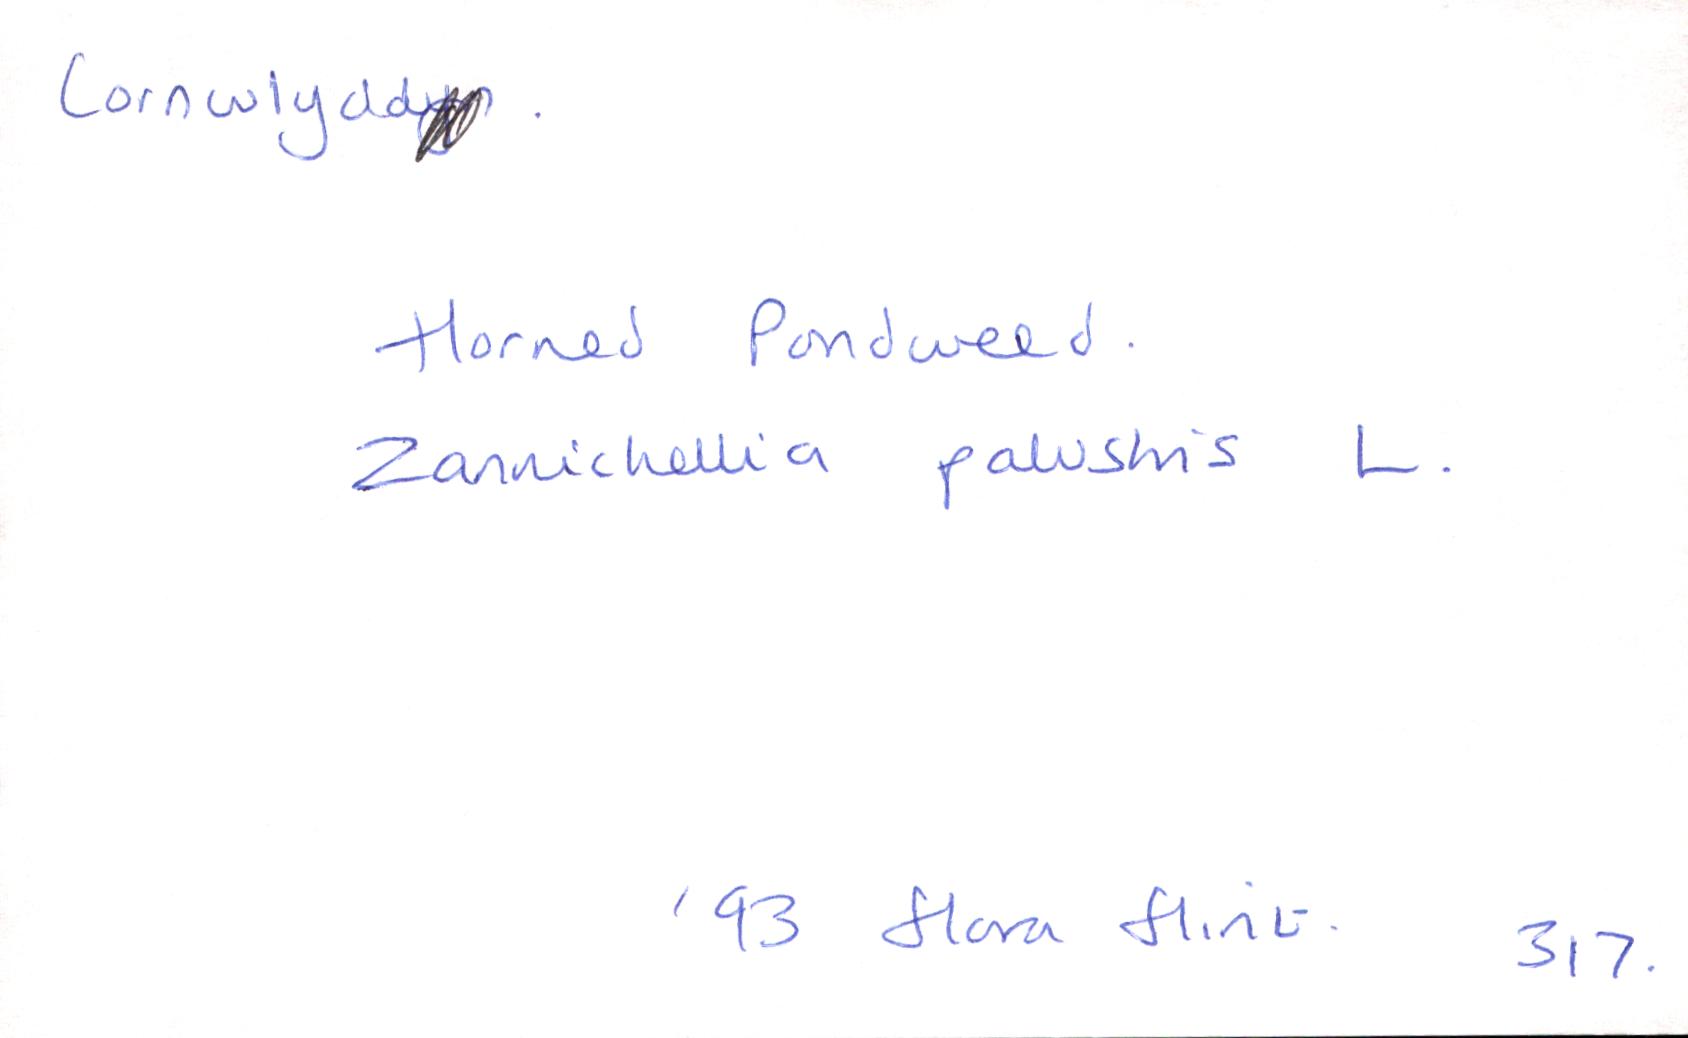 Cornwlyddyn.
Horned Pondweed.
Zannichellia palustris L.
'93 flora flint.
317.